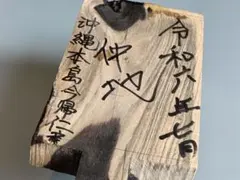 令和六年七月
仲地
沖縄本島今帰仁産